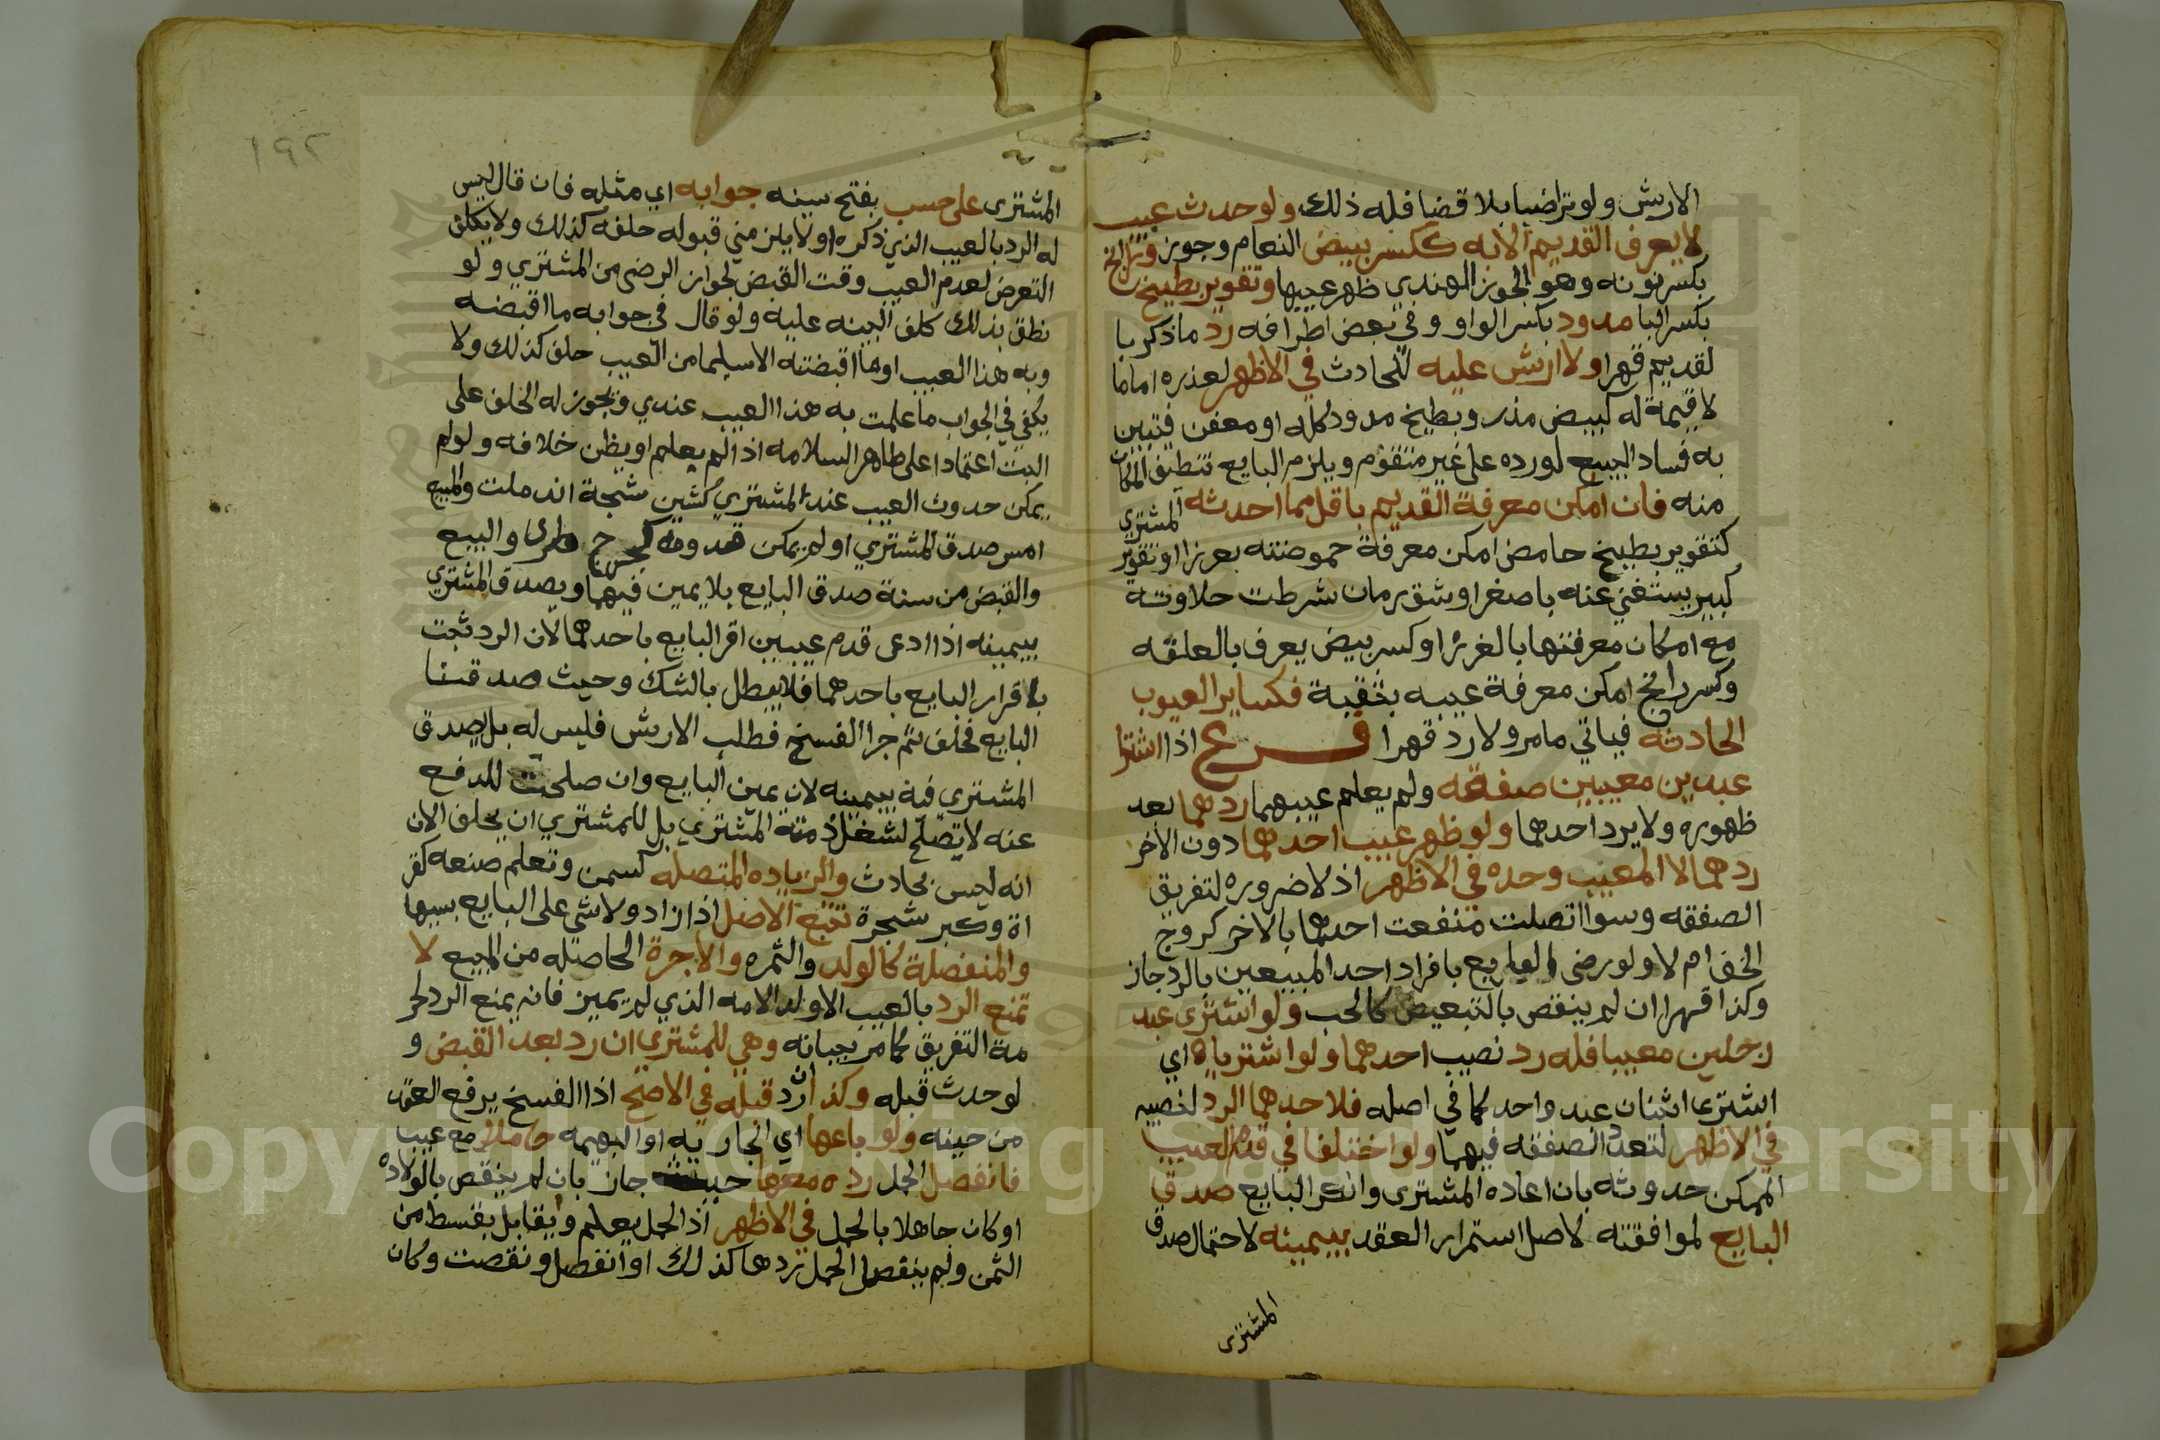 الارش ولو تراضيا بلا قضا فله ذلك ولو حدث عيب
لا يعرف القديم الا به ككسر بيض النعام وجوز ورانج
بكسر نونه وهو الجوز الهندي ظهر عيبها وتقوير بطيخ
بكسر البا مدود بكسر الواو وفي بعض اطرافه رد ما ذكر با
لقديم قهرا ولا ارش عليه للحادث في الاظهر لعذره اما ما
لا قيمة له كبيض مذر وبطيخ مدود كله او معفن فتبين
به فساد البيع لورده على غير متقوم ويلزم البايع تنظيف المكان
منه فان امكن معرفة القديم باقل مما احدثه المشتري
كتقوير بطيخ حامض امكن معرفة حموضته بغرزا او تقوير
كبير يستغني عنه باصغر او شق رمان شرطت حلاوته
مع امكان معرفتها بالغرز او كسر بيض يعرف بالعلقه
وكسر رانج امكن معرفة عيبه بثقبة فكساير العيوب
الحادثه فياتي مامر ولا رد قهرا فرع اذا اشترا
عبدين معيبين صفقه ولم يعلم عيبهما ردهما بعد
ظهوره ولا يرد احدهما ولو ظهر عيب احدهما دون الاخر
ردهما لا المعيب وحده في الاظهر اذ لا ضروره لتفريق
الصفقه وسوا اتصلت منفعت احدهما بالاخر كروج
الخف ام لا ولو رضي البايع بافراد احد المبيعين بالرد جاز
وكذا قهرا ان لم ينقص بالتبعيض كالحب ولو اشترى عبد
رجلين معيبا فله رد نصيب احدهما ولو اشترياه اي
اشترى اثنان عبد واحد كما في اصله فلاحدهما الرد لنصيبه
في الاظهر لتعدد الصفقه فيهما ولو اختلفا في قدم العيب
الممكن حدوثه بان ادعاه المشترى وانكر البايع صدق
البايع لموافقته لاصل استمرار العقد بيمينه لاحتمال صدق
المشترى
١٩٢
المشترى على حسب بفتح سينه جوابه اي مثله فان قال ليس
له الرد بالعيب الذي ذكره او لا يلزمني قبوله حلفه كذلك ولا يكلف
التعرض لعدم العيب وقت القبض لجواز الرضى من المشتري ولو
نطق بذلك كلف البينه عليه ولو قال في جوابه ما اقبضه
وبه هذا العيب او ما اقبضته الا سليما من العيب حلف كذلك ولا
يكفي في الجواب ما علمت به هذا العيب عندي ويجوز له الحلف على
البت اعتمادا على ظاهر السلامه اذا لم يعلم او يظن خلافه ولو لم
يمكن حدوث العيب عند المشتري كشين شجة اندملت والمبيع
امس صدق المشتري او لم يمكن قدومه كجرح طري والبيع
والقبض من سنة صدق البايع بلا يمين فيهما ويصدق المشتري
بيمينه اذا ادعى قدم عيبين اقر البايع باحدهما لان الرد ثبت
بلاقرار البايع باحدهما فلا يبطل بالشك وحيث صدقنا
البايع فحلف ثم جرا الفسخ فطلب الارش فليس له بل يصدق
المشتري فيه بيمينه لان يمين البايع وان صلحت للدفع
عنه لا تصلح لشغل ذمة المشتري بل للمشتري ان يحلف الان
انه ليس بحادث والزياده المتصله كسمن وتعلم صنعه كقر
اة وكبر شجرة تتبع الاصل اذا زاد ولا شي على البايع بسببها
والمنفصلة كالولد والثمره والاجرة الحاصله من المبيع لا
تمنع الرد بالعيب الا ولد الامه الذي لم يميز فانه يمنع الرد لحر
مة التفريق كما مر بيانه وهي للمشتري ان رد بعد القبض و
لو حدث قبله وكذا ان رد قبله في الاصح اذا الفسخ يرفع العقد
من حينه ولو باعها اي الجاريه او البهيمه حاملا مع عيب
فانفصل الحمل رده معها حيث جاز بان لم ينقص بالولاده
او كان جاهلا بالحمل في الاظهر اذ الحمل يعلم ويقابل بقسط من
الثمن ولم ينفصل الحمل ردها كذلك او انفصل ونقصت وكان
Copyright © King Saud University